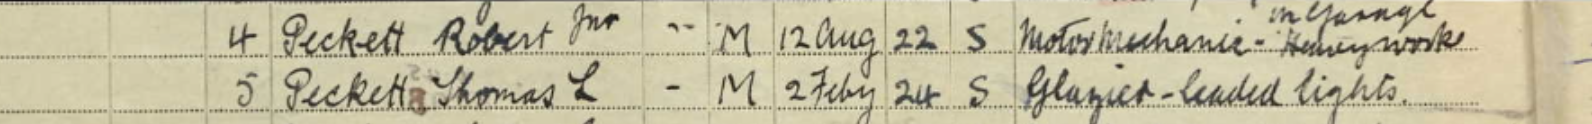 in Garage
4 Peckett Robert Jnr -- M 12 Aug 22 S Motor Mechanic - Heavy work
5 Peckett Thomas L - M 2 Feby 24 S Glazier - leaded lights.